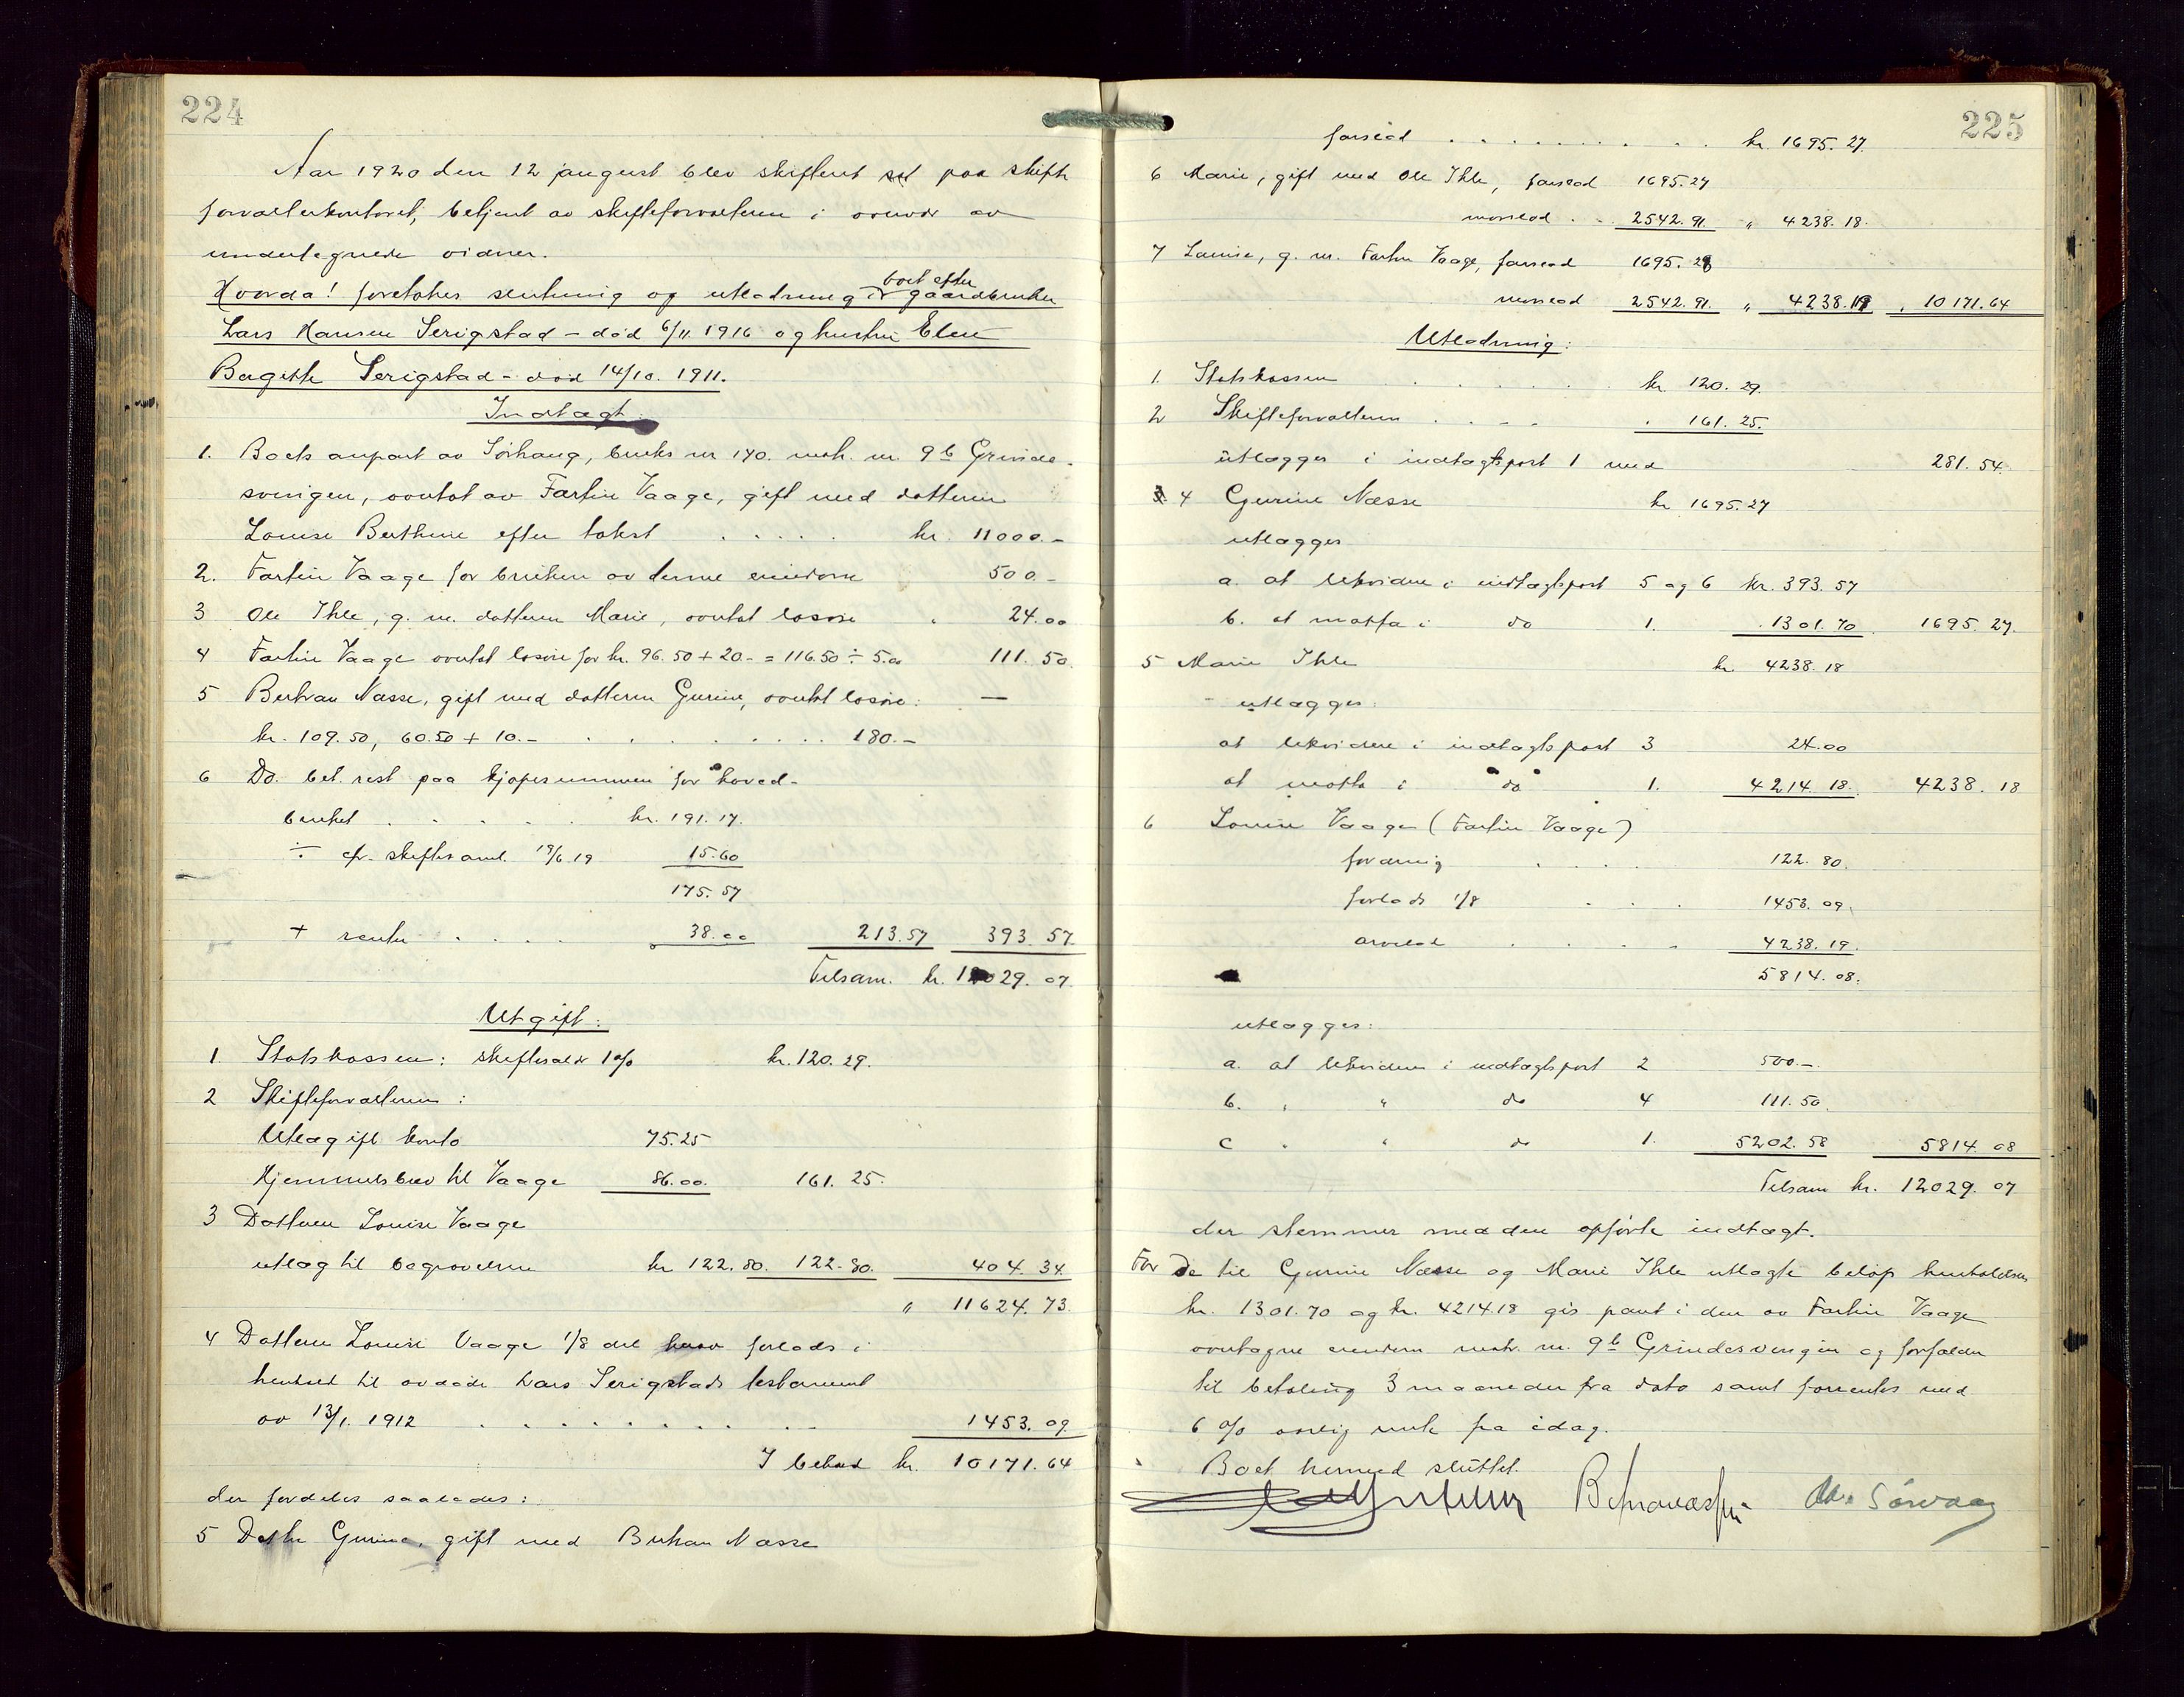 224
Aar 1920 den 12 august blev skifteret sat paa skifte
forvalterkontoret, betjent av skifteforvalteren i overvær av
undertegnede vidner.
Hvorda! foretokes slutning og utlodning i boet efter gaardbruker
Lars Hansen Serigstad – død 6/11. 1916 og hustru Elen
Bergitte Serigstad – død 14/10. 1911.
Indtægt:
1. Boets anpart av Sørhaug, bruks nr 170. matr. nr. 9b Grindes-
svingen, overtat av Fartin Vaage, gift med datteren
Louise Berthine efter takst . . . . . kr. 11000.-
2. Fartin Vaage for bruken av denne eiendom 500.-
3 Ole Ihle, g. m. datteren Marie, overtat løsøre " 24.00
4 Fartin Vaage overtat løsøre for kr. 96.50 + 20.- = 116.50 ÷ 5.00 111.50.
5 Bertran Næsse, gift med datteren Gurine, overtat løsøre: —
kr. 109.50, 60.50 + 10.- . . . . . . . 180.-
6 Do. bet. rest paa kjøpesummen for hoved-
bruket . . . . . kr. 191.17.
÷ cfr. skiftesaml. 19/6.19 15.60
175.57
+ renter . . . . 38.00 213.57 393.57.
Tilsam. kr. 12029.07.
Utgift:
1 Statskassen: skifteavgift 1 o/o kr. 120.29.
2 Skifteforvalteren:
Utlagt konto 75.25
Hjemmelsbrev til Vaage 86.00. 161.25.
3 Datteren Louise Vaage
utlæg til begravelsen kr 122.80. 122.80. 404.34.
" 11624.73.
4 Datteren Louise Vaage 1/8 del forlods i
henhold til avdøde Lars Serigstads testament
av 13/1. 1912 . . . . . . . . . 1453.09.
I behold kr. 10171.64
der fordeles saaledes:
5 Datter Gurine, gift med Bertran Næsse
225
farslod . . . . . . . . . kr. 1695.27.
6 Marie, gift med Ole Ihle, farslod 1695.27
morslod . . 2542.91. " 4238.18.
7 Louise, g. m. Fartin Vaage, farslod 1695.28
morslod 2542.91. " 4238.19 " 10171.64
Utlodning:
1. Statskassen . . . . . . kr. 120.29.
2 Skifteforvalteren . . . . " 161.25.
utlægges i indtægtspost 1 med 281.54.
4 Gurine Næsse kr 1695.27
utlægges
a. at likvidere i indtægtspost 5 og 6 kr. 393.57
b. at motta i do 1. 1301.70 1695.27.
5 Marie Ihle kr. 4238.18
utlægges:
at likvidere i indtægtspost 3 24.00
at motta i do 1. 4214.18. 4238.18
6 Louise Vaage (Fartin Vaage)
fordring . . . . 122.80.
forlods 1/8 . . . 1453.09.
arvelod . . . . 4238.19.
5814.08.
utlægges:
a. at likvidere i indtægtspost 2 500.-.
b. " " do 4 111.50.
c " " do 1. 5202.58 5814.08
Tilsam kr. 12029.07
der stemmer med den opførte indtægt.
For de til Gurine Næsse og Marie Ihle utlagte beløp henholdsvis
kr. 1301.70 og kr. 4214.18 gis pant i den av Fartin Vaage
overtagne eiendom matr. nr. 9b Grindesvingen og forfalder
til betaling 3 maaneder fra dato samt forrentes med
6 o/o aarlig rente fra idag.
Boet hermed sluttet.